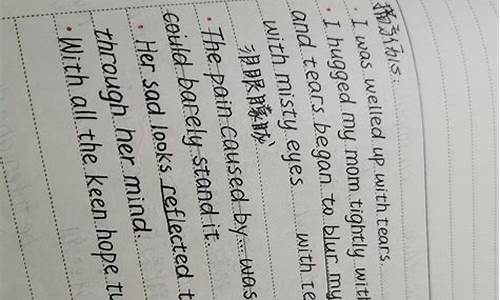 描述伤心:
· I was welled up with tears.
· I hugged my mom tightly with
and tears began to blur my
with misty eyes with te
泪眼朦胧
· The pain caused by... was
could barely stand it.
· Her sad looks reflected t
through her mind.
· With all the keen hope tu